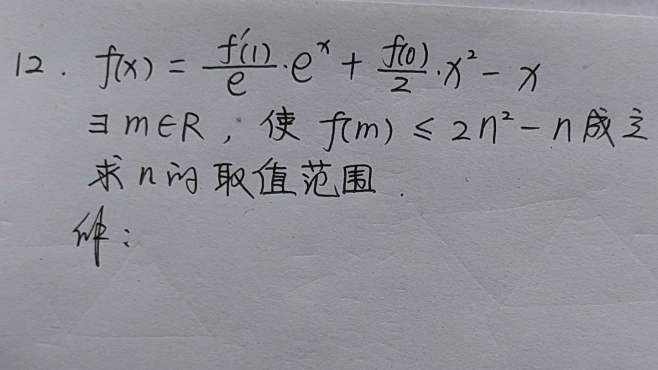 12. f(x) = f'(1)/e · e^x + f(0)/2 · x² - x
∃ m∈R, 使 f(m) ≤ 2n² - n 成立
求 n 的取值范围.
解: